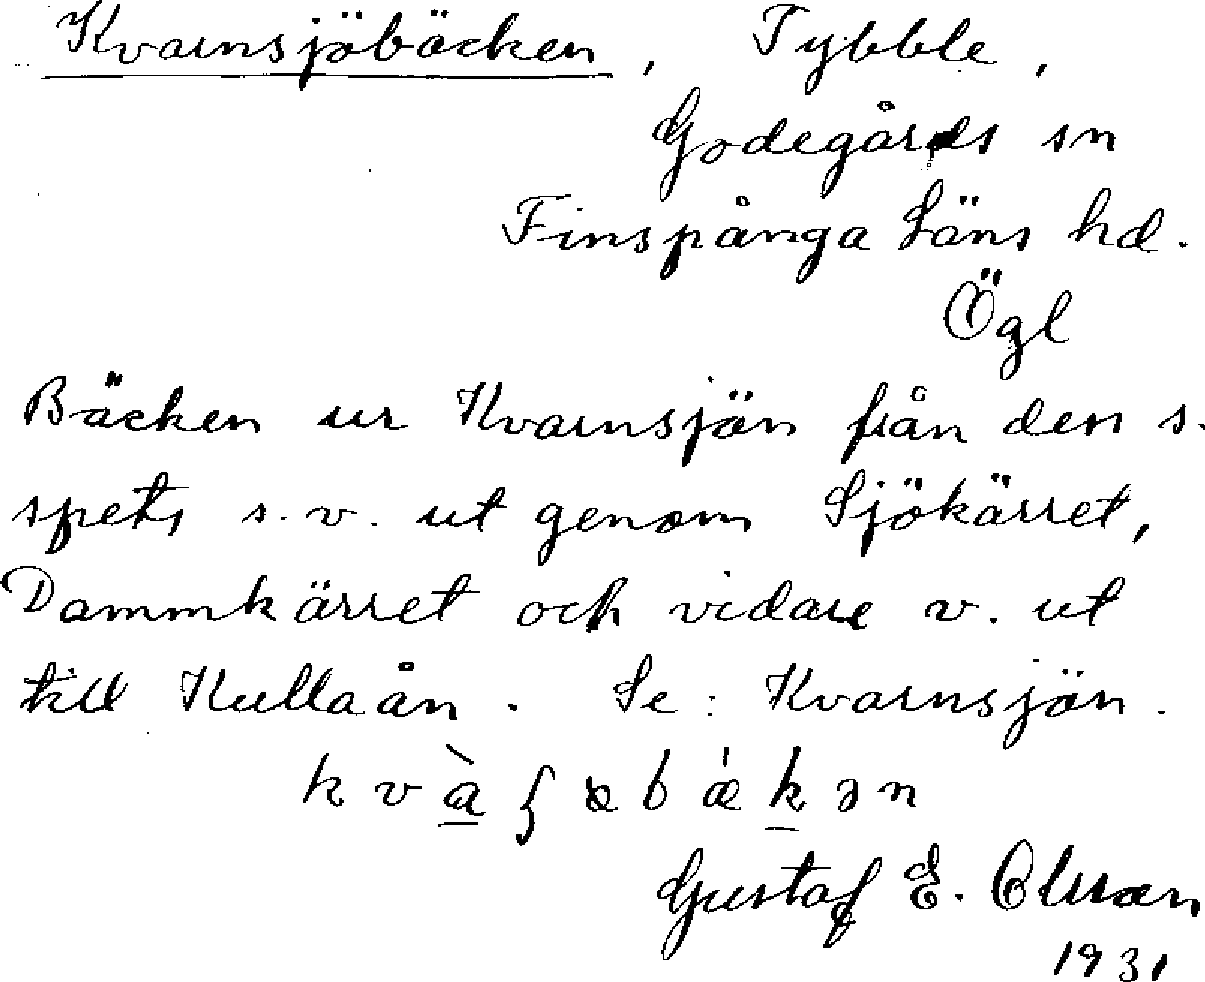 Kvarnsjöbäcken, Tybble,
Godegårds sn
Finspånga Läns hd.
Ögl
Bäcken ur Kvarnsjön från den s.
spets s.v. ut genom Sjökärret,
Dammkärret och vidare v. ut
till Kullaån. Se: Kvarnsjön.
Gustaf E. Olsson
1931